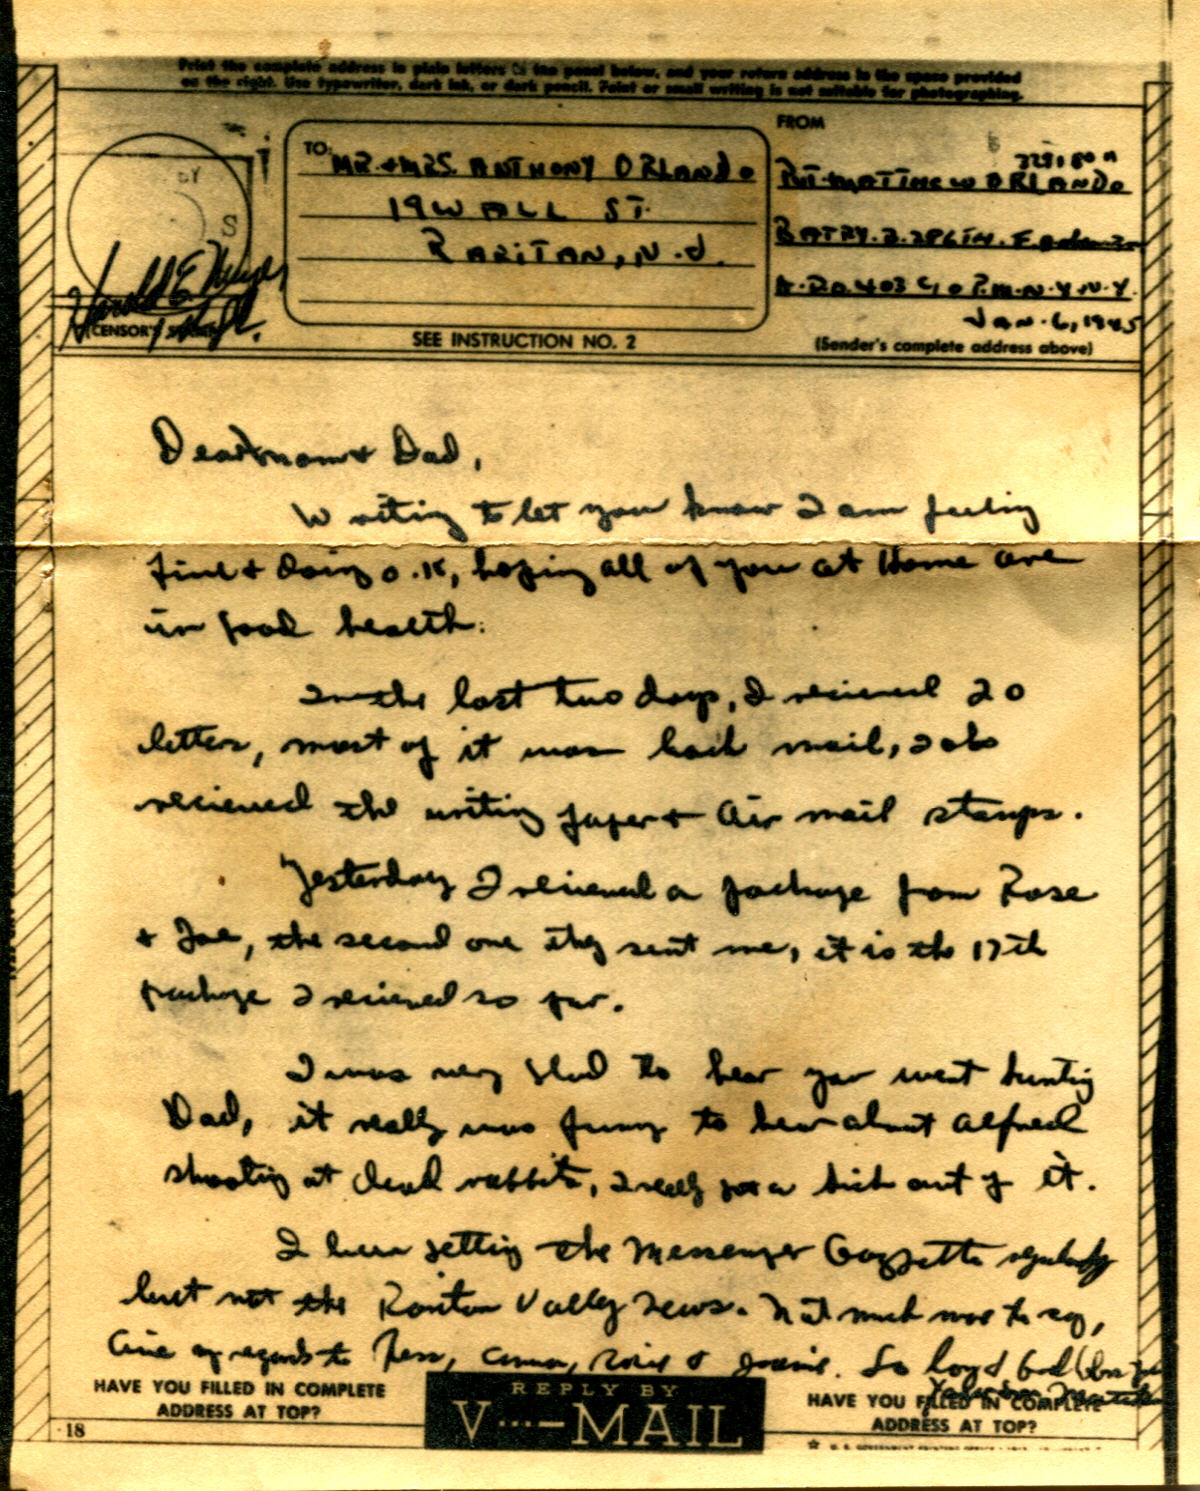 Print the complete address in plain letters in the panel below, and your return address in the space provided
on the right. Use typewriter, dark ink, or dark pencil. Faint or small writing is not suitable for photographing.
FROM
TO:
MR.+MRS. ANTHONY ORLANDO
19 WALL ST.
RARITAN, N.J.
PVT. MATTHEW ORLANDO
BATRY. B.
A.P.O. 403 C/O P.M. N.Y. N.Y.
JAN. 6, 1945
(Sender's complete address above)
Harold E.
CENSOR'S STAMP
SEE INSTRUCTION NO. 2
Dear mom + Dad,
Writing to let you know I am feeling
fine + doing O.K, hoping all of you at Home are
in good health.
In the last two days, I recieved 20
letters, most of it was back mail, I also
recieved the writing paper + Air mail stamps.
Yesterday I recieved a package from Rose
+ Joe, the second one they sent me, it is the 17th
package I recieved so far.
I was very glad to hear you went hunting
Dad, it really was funny to hear about Alfred
shooting at dead rabbits, I really got a kick out of it.
I been getting the Messenger Gazzette regularly
but not the Raritan Valley News. Not much more to say,
Give my regards to Tess, & So long & God Bless you
Your Son
HAVE YOU FILLED IN COMPLETE
ADDRESS AT TOP?
REPLY BY
V···—MAIL
HAVE YOU FILLED IN COMPLETE
ADDRESS AT TOP?
18